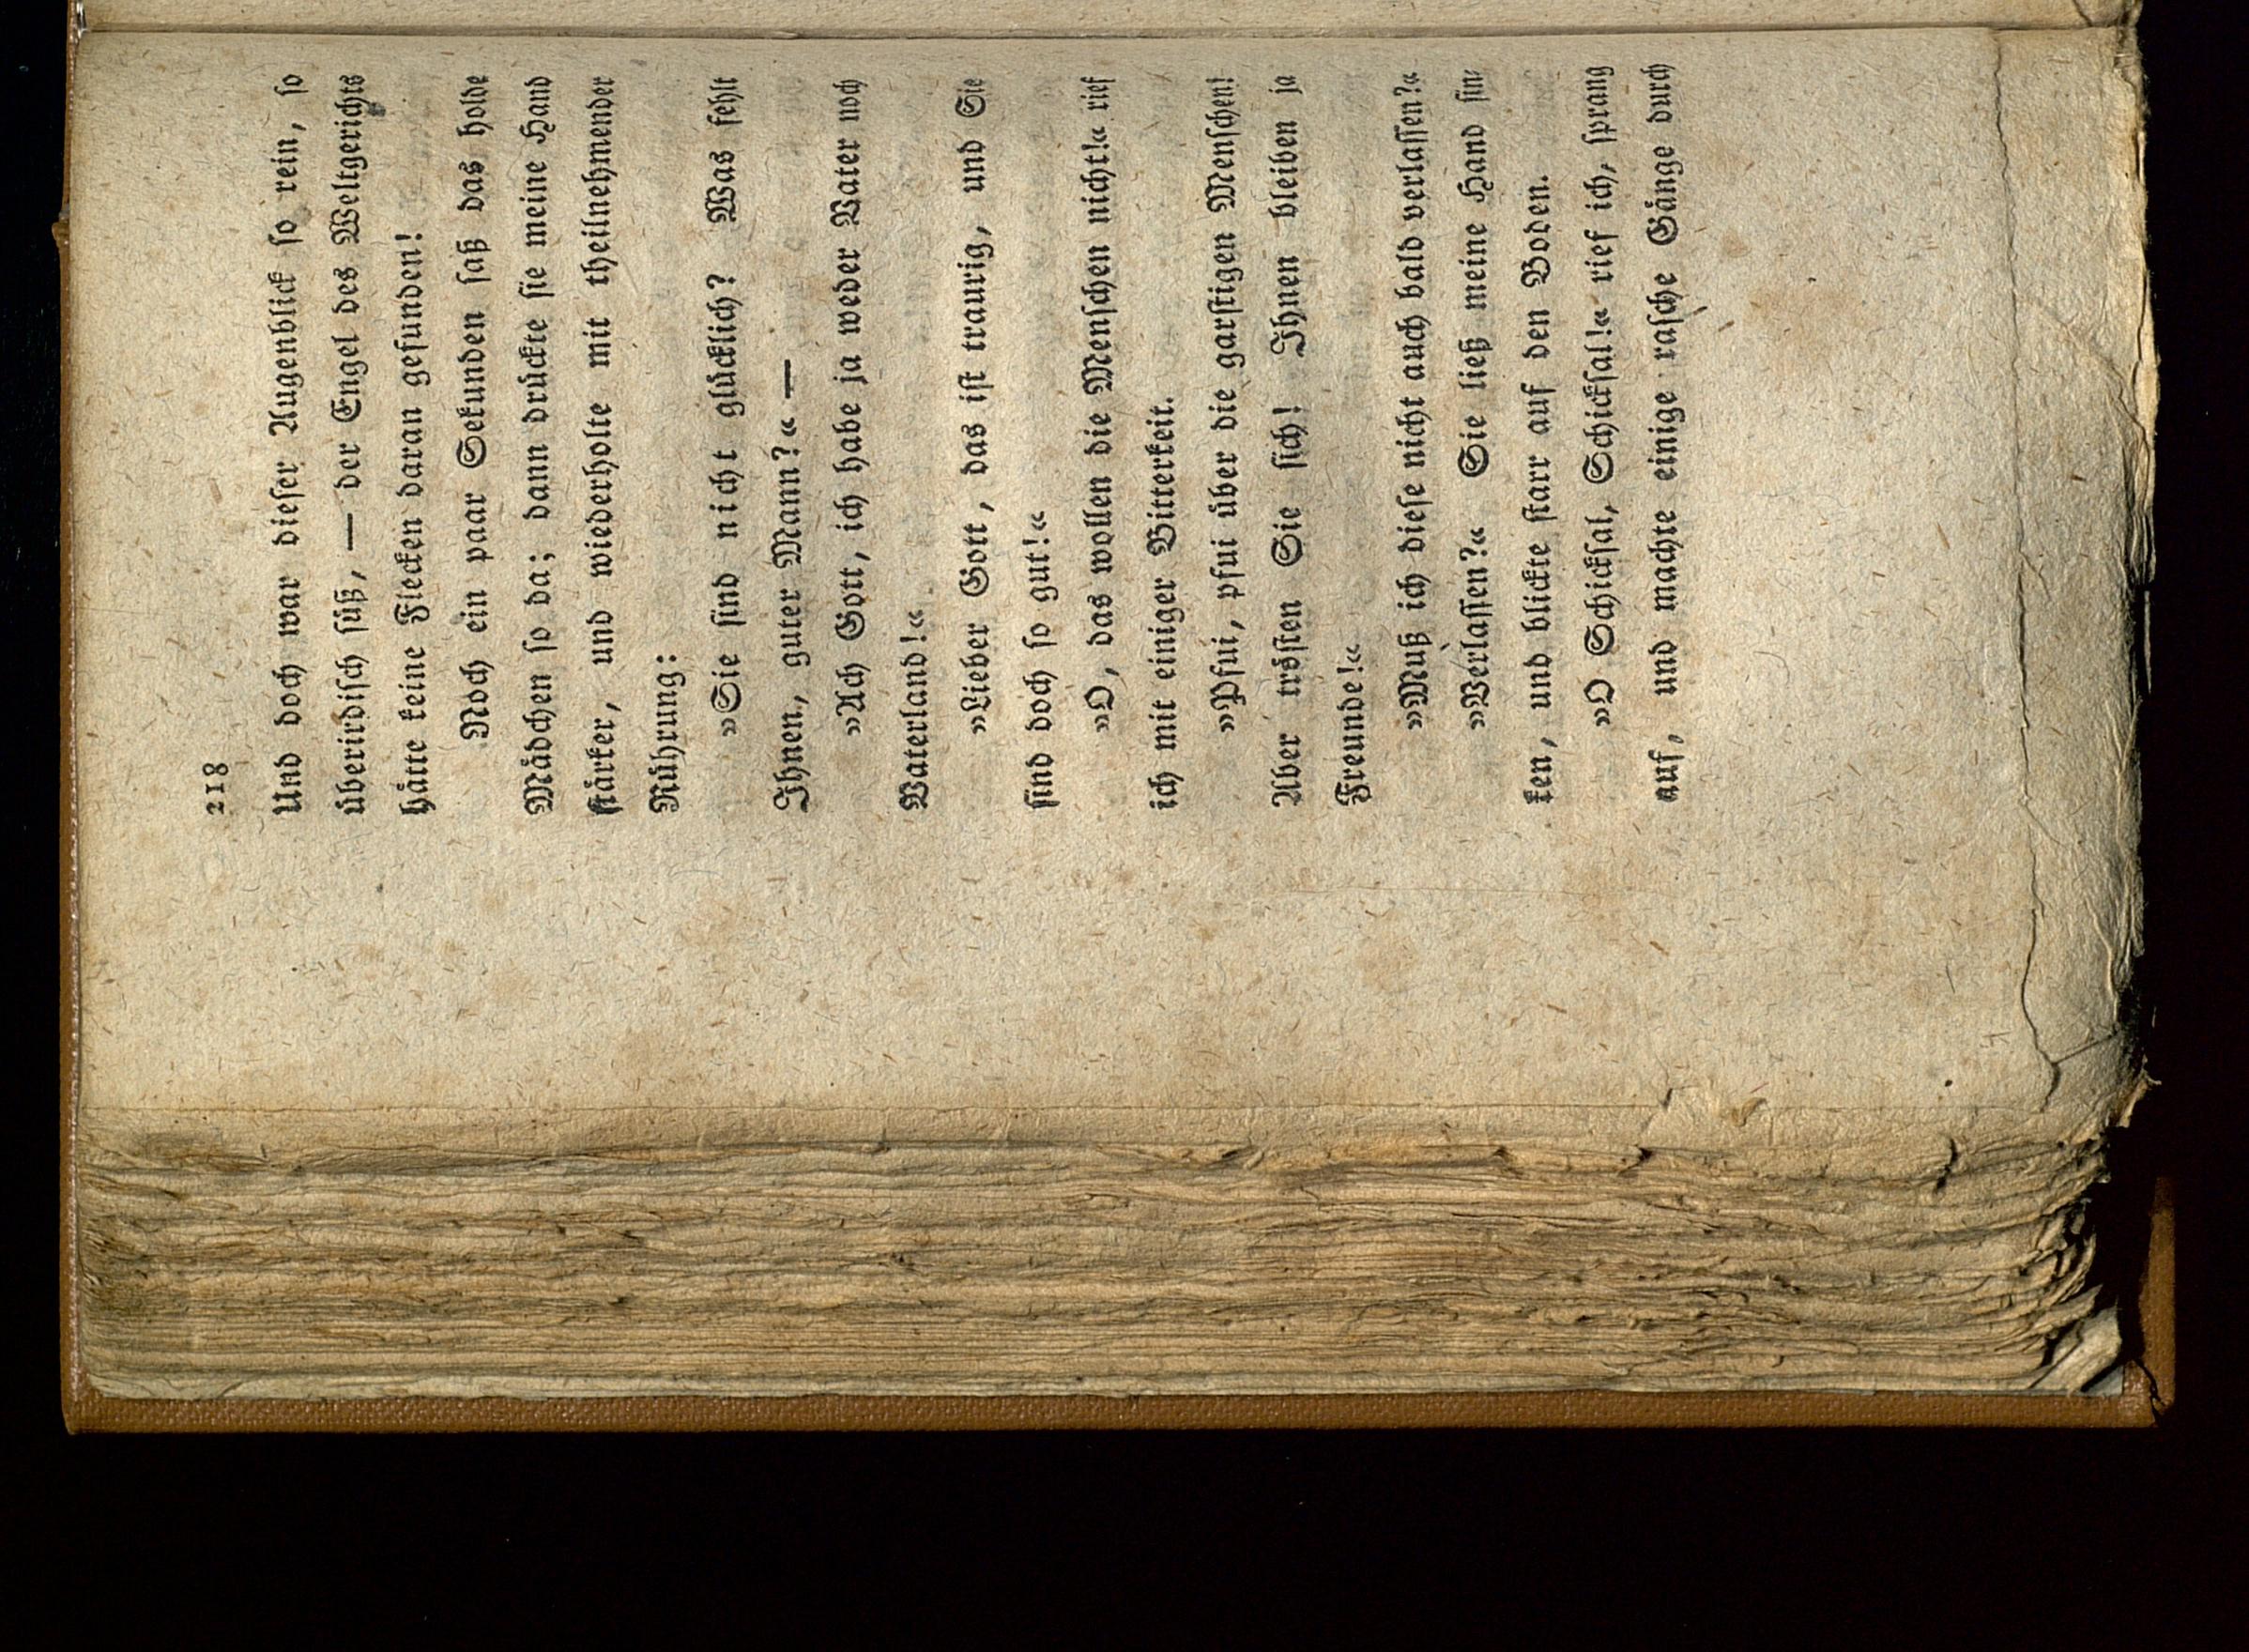 218
Und doch war dieſer Augenblick ſo rein, ſo
uͤberirdiſch ſuͤß, — der Engel des Weltgerichts
haͤtte keine Flecken daran gefunden!
Noch ein paar Sekunden ſaß das holde
Maͤdchen ſo da; dann druͤckte ſie meine Hand
ſtaͤrker, und wiederholte mit theilnehmender
Ruͤhrung:
»Sie ſind nicht gluͤcklich? Was fehlt
Ihnen, guter Mann?« —
»Ach Gott, ich habe ja weder Vater noch
Vaterland!«
»Lieber Gott, das iſt traurig, und Sie
ſind doch ſo gut!«
»O, das wollen die Menſchen nicht!« rief
ich mit einiger Bitterkeit.
»Pfui, pfui uͤber die garſtigen Menſchen!
Aber troͤſten Sie ſich! Ihnen bleiben ja
Freunde!«
»Muß ich dieſe nicht auch bald verlaſſen?«
»Verlaſſen?« Sie ließ meine Hand ſin⸗
ken, und blickte ſtarr auf den Boden.
»O Schickſal, Schickſal!« rief ich, ſprang
auf, und machte einige raſche Gaͤnge durch